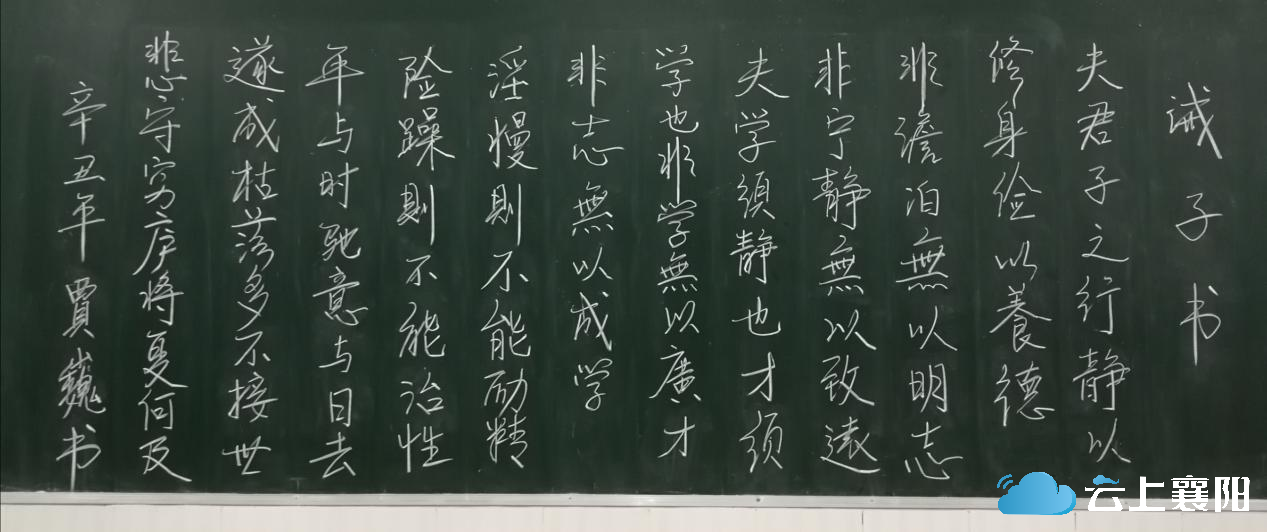 诫子书
夫君子之行静以
修身俭以養德
非澹泊無以明志
非宁静無以致遠
夫学须静也才须
学也非学無以廣才
非志無以成学
淫慢則不能励精
险躁則不能治性
年与时驰意与日去
遂成枯落多不接世
悲守穷庐将复何及
辛丑年 賈巍书
云上襄阳